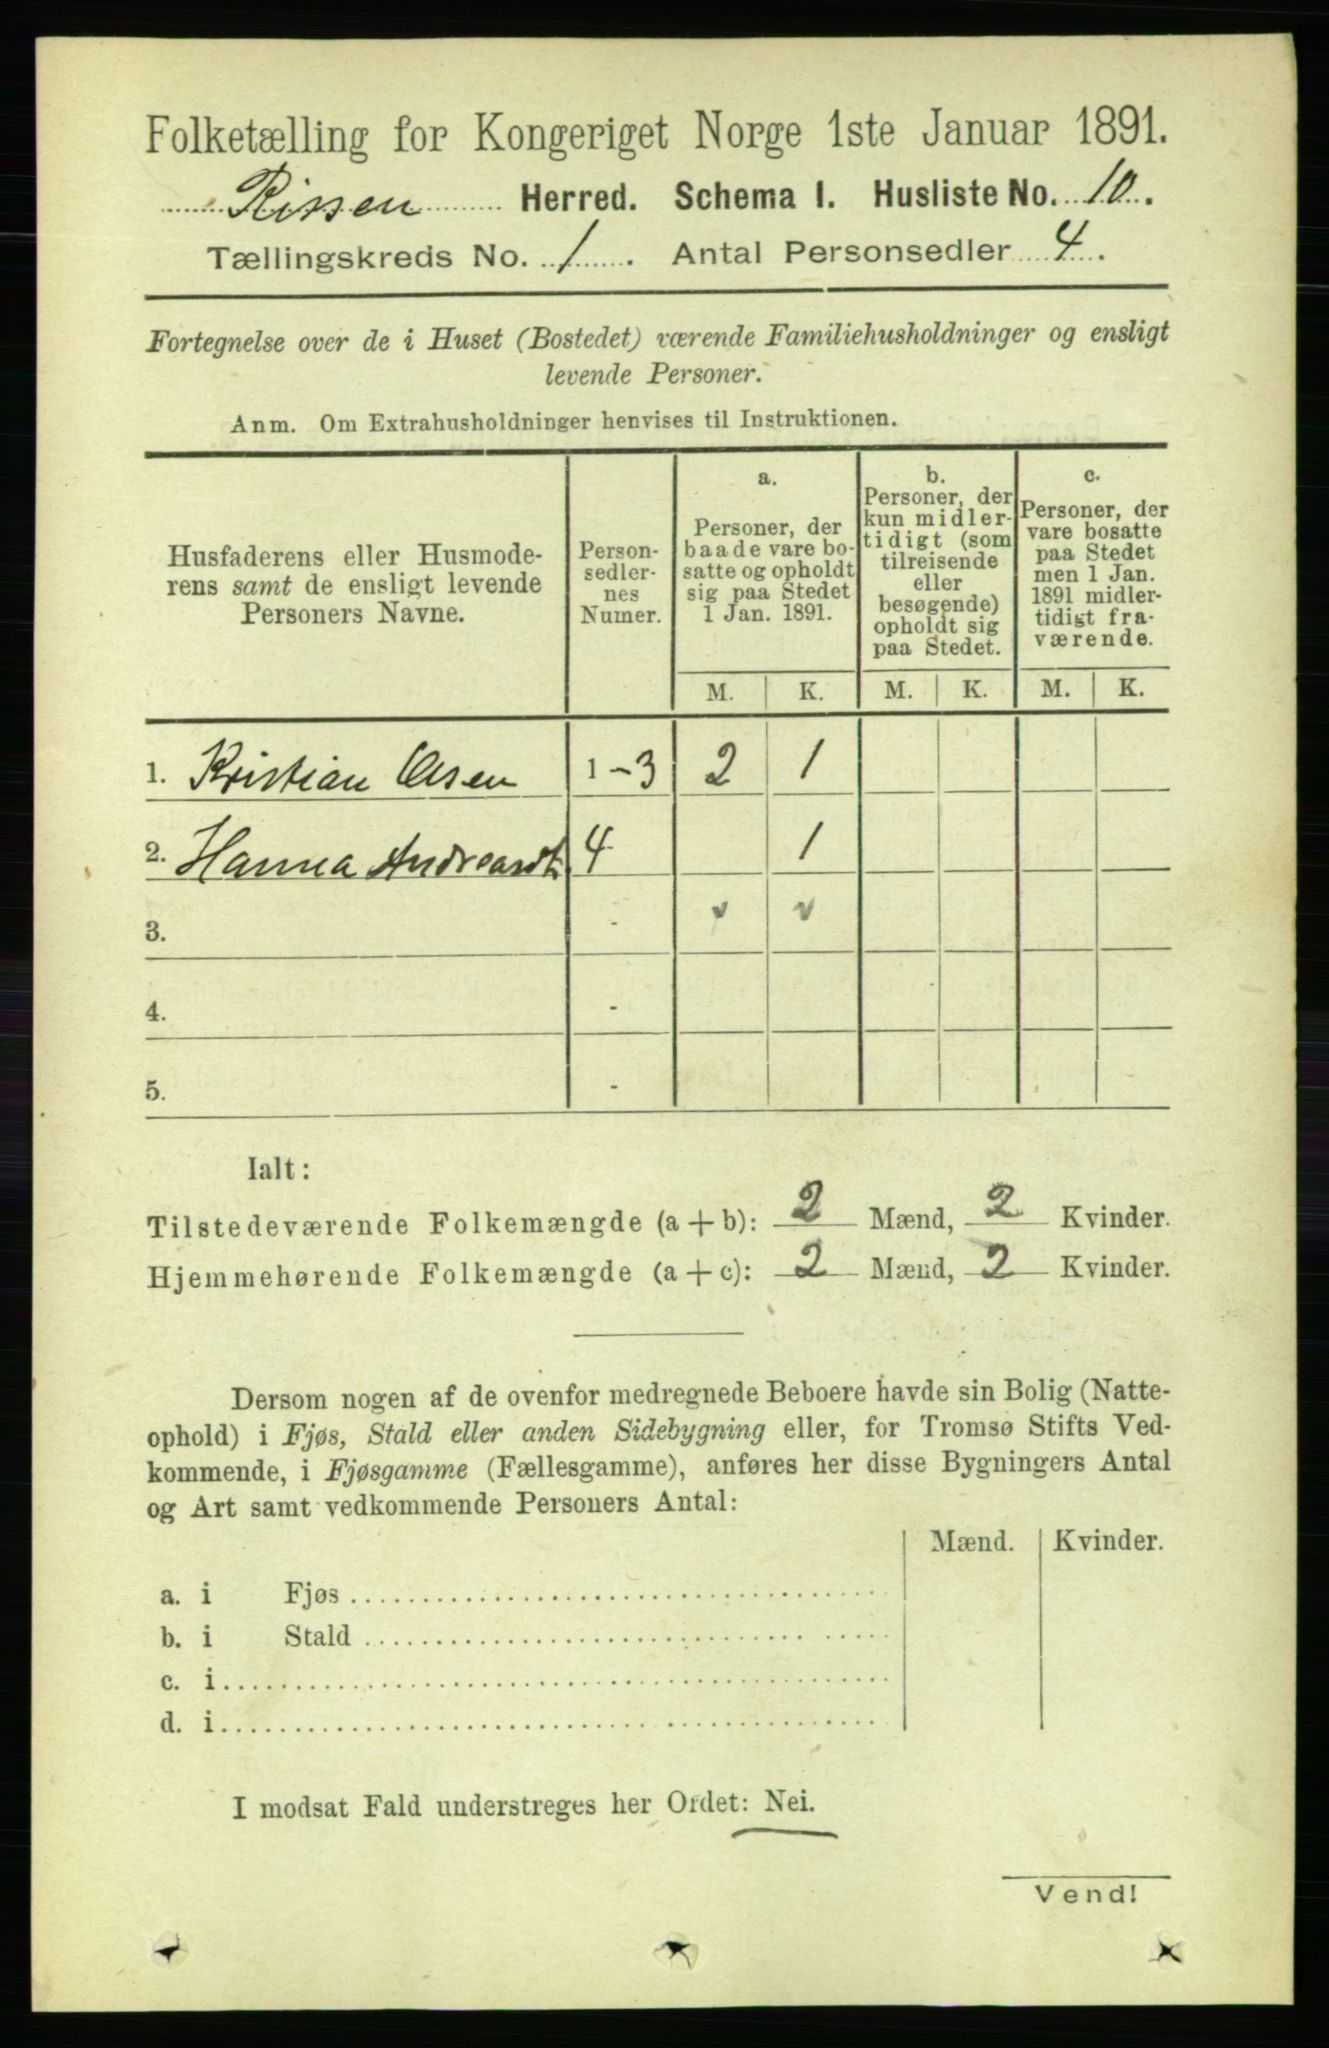 Folketælling for Kongeriget Norge 1ste Januar 1891.
Rissen Herred. Schema I. Husliste No. 10.
Tællingskreds No. 1. Antal Personsedler 4.
Fortegnelse over de i Huset (Bostedet) værende Familiehusholdninger og ensligt
levende Personer.
Anm. Om Extrahusholdninger henvises til Instruktionen.
Husfaderens eller Husmode-
rens samt de ensligt levende
Personers Navne.
Person-
sedler-
nes
Numer.
a.
Personer, der
baade vare bo-
satte og opholdt
sig paa Stedet
1 Jan. 1891.
b.
Personer, der
kun midler-
tidigt (som
tilreisende
eller
besøgende)
opholdt sig
paa Stedet.
c.
Personer, der
vare bosatte
paa Stedet
men 1 Jan.
1891 midler-
tidigt fra-
værende.
M. K. M. K. M. K.
1. Kristian Olsen 1-3 2 1
2. Hanna 4 1
3. -
4. -
5. -
Ialt:
Tilstedeværende Folkemængde (a + b): 2 Mænd, 2 Kvinder.
Hjemmehørende Folkemængde (a + c): 2 Mænd, 2 Kvinder.
Dersom nogen af de ovenfor medregnede Beboere havde sin Bolig (Natte-
ophold) i Fjøs, Stald eller anden Sidebygning eller, for Tromsø Stifts Ved-
kommende, i Fjøsgamme (Fællesgamme), anføres her disse Bygningers Antal
og Art samt vedkommende Personers Antal:
Mænd. Kvinder.
a. i Fjøs
b. i Stald
c. i
d. i
I modsat Fald understreges her Ordet: Nei.
Vend!